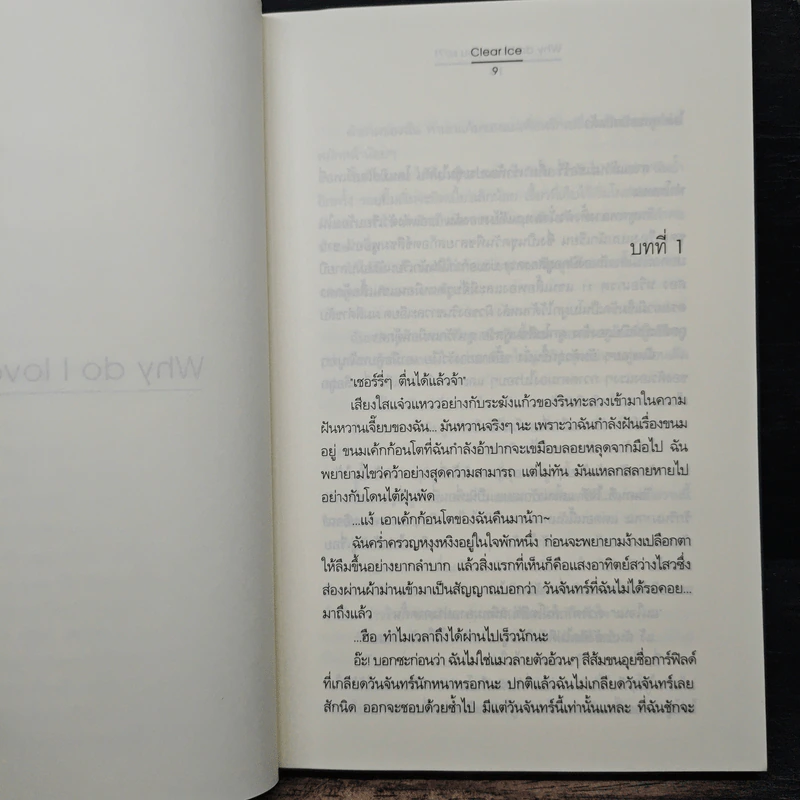 Clear Ice
9
บทที่ 1
Why do I love
"เชอร์รี่ๆ ตื่นได้แล้วจ้า"
เสียงใสแจ๋วแหววอย่างกับระฆังแก้วของรินทะลวงเข้ามาในความ
ฝันหวานเจี๊ยบของฉัน... มันหวานจริงๆ นะ เพราะว่าฉันกำลังฝันเรื่องขนม
อยู่ ขนมเค้กก้อนโตที่ฉันกำลังอ้าปากจะเขมือบลอยหลุดจากมือไป ฉัน
พยายามไขว่คว้าอย่างสุดความสามารถ แต่ไม่ทัน มันแหลกสลายหายไป
อย่างกับโดนไต้ฝุ่นพัด
...แง้ เอาเค้กก้อนโตของฉันคืนมาน้าา~
ฉันคร่ำครวญหงุงหงิงอยู่ในใจพักหนึ่ง ก่อนจะพยายามง้างเปลือกตา
ให้ลืมขึ้นอย่างยากลำบาก แล้วสิ่งแรกที่เห็นก็คือแสงอาทิตย์สว่างไสวซึ่ง
ส่องผ่านผ้าม่านเข้ามาเป็นสัญญาณบอกว่า วันจันทร์ที่ฉันไม่ได้รอคอย...
มาถึงแล้ว
...ฮือ ทำไมเวลาถึงได้ผ่านไปเร็วนักนะ
อ๊ะ! บอกซะก่อนว่า ฉันไม่ใช่แมวลายตัวอ้วนๆ สีส้มขนอุยชื่อการ์ฟิลด์
ที่เกลียดวันจันทร์นักหนาหรอกนะ ปกติแล้วฉันไม่เกลียดวันจันทร์เลย
สักนิด ออกจะชอบด้วยซ้ำไป มีแต่วันจันทร์นี้เท่านั้นแหละ ที่ฉันชักจะ